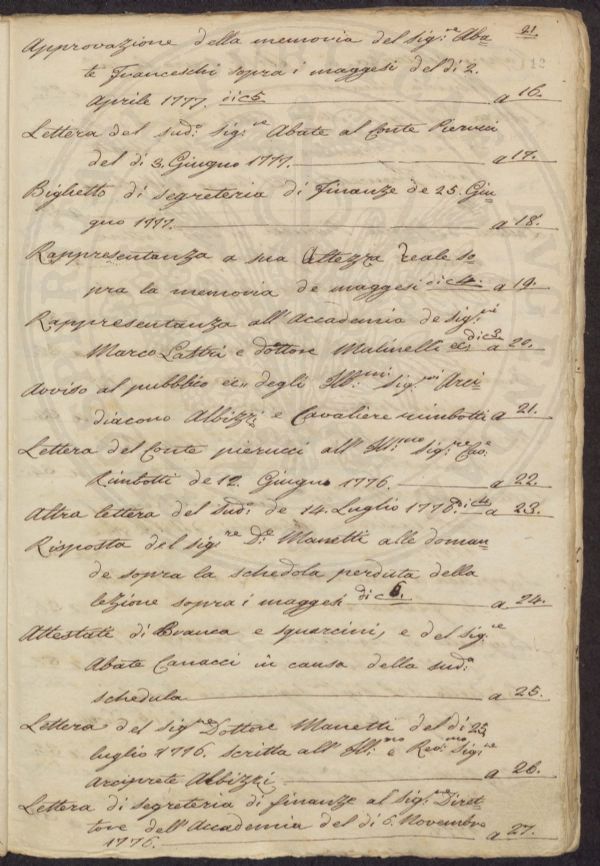 21
Approvazione della memoria del sig:re Aba-
te Franceschi sopra i maggesi del dì 2.
Aprile 1777. di c 5 a 16.
Lettera del sud:o sig:re Abate al Conte Pierucci
del dì 3. Giugno 1777. a 17.
Biglietto di segreteria di finanze de 25. Giu-
gno 1777. a 18.
Rappresentanza a sua Altezza reale so-
pra la memoria de maggesi di c 4. a 19.
Rappresentanza all'Accademia de sig:ri
Marco Lastri e dottore Mulinelli di c 3 a 20.
Avviso al pubblico degli Ill:mi sig:ri Arci-
diacono Albizzi e Cavaliere rimbotti a 21.
Lettera del Conte pierucci all'Ill:mo sig:re Cav:e
Rimbotti de 12. Giugno 1776. a 22.
Altra lettera del sud:o de 14. Luglio 1776. a 23.
Risposta del sig:re D:re Manetti alle doman-
de sopra la schedola perduta della
lezione sopra i maggesi di c 6. a 24.
Attestate di Branca e squarcini, e del sig:re
Abate Canacci in causa della sud:a
schedula a 25.
Lettera del sig:re Dottore Manetti del dì 25
luglio 1776. scritta all'Ill:mo e Rev:mo sig:re
Arciprete Albizzi a 26.
Lettera di segreteria di finanze al sig:re Diret-
tore dell'Accademia del dì 6. Novembre
1776. a 27.